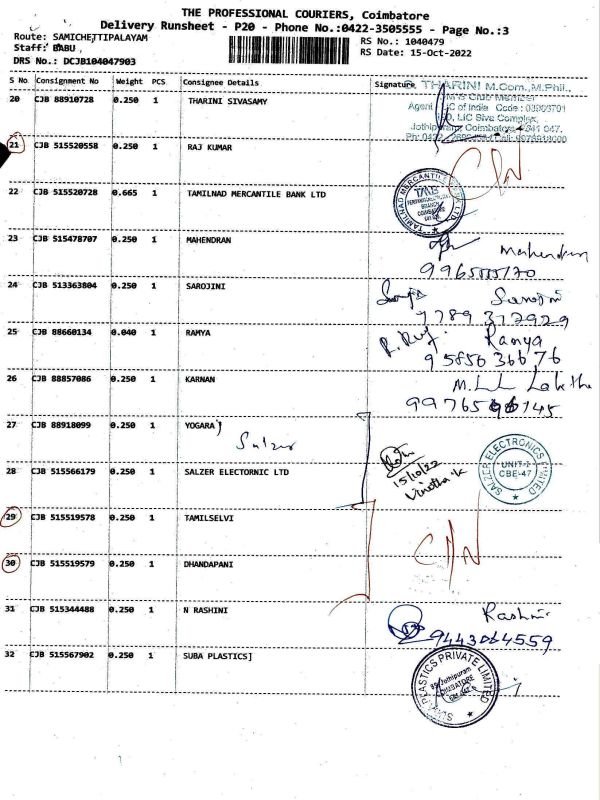 THE PROFESSIONAL COURIERS, Coimbatore
Delivery Runsheet - P20 - Phone No.:0422-3505555 - Page No.:3
Route: SAMICHETTIPALAYAM
RS No.: 1040479
Staff: BABU,
RS Date: 15-Oct-2022
DRS No.: DCJB104047903
S No Consignment No Weight PCS Consignee Details Signature
20 CJB 88910728 0.250 1 THARINI SIVASAMY
THARINI M.Com.,M.Phil.,
21 CJB 515520558 0.250 1 RAJ KUMAR
22 CJB 515520728 0.665 1 TAMILNAD MERCANTILE BANK LTD
TAMILNAD MERCANTILE BANK LTD.
TMB
23 CJB 515478707 0.250 1 MAHENDRAN
Mahendran
24 CJB 513363804 0.250 1 SAROJINI
Sarojini
7789317929
25 CJB 88660134 0.040 1 RAMYA
Ramya
9585636676
26 CJB 88857086 0.250 1 KARNAN
27 CJB 88918099 0.250 1 YOGARAJ
Salzer
28 CJB 515566179 0.250 1 SALZER ELECTORNIC LTD
15/10/22
SALZER ELECTRONICS LIMITED
UNIT-I
CBE-47
29 CJB 515519578 0.250 1 TAMILSELVI
30 CJB 515519579 0.250 1 DHANDAPANI
31 CJB 515344488 0.250 1 N RASHINI
Rashmi
9443064559
32 CJB 515567902 0.250 1 SUBA PLASTICS]
SUBA PLASTICS PRIVATE LIMITED
Jothipuram
COIMBATORE